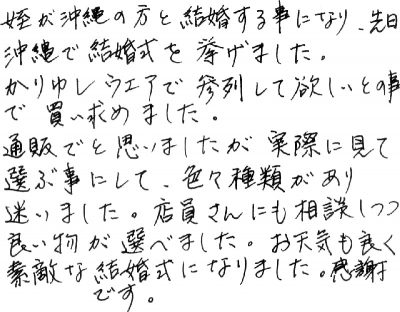 姪が沖縄の方と結婚する事になり、先日
沖縄で結婚式を挙げました。
かりゆしウエアで参列して欲しいとの事
で買い求めました。
通販でと思いましたが実際に見て
選ぶ事にして、色々種類があり
迷いました。店員さんにも相談しつつ
良い物が選べました。お天気も良く
素敵な結婚式になりました。感謝
です。